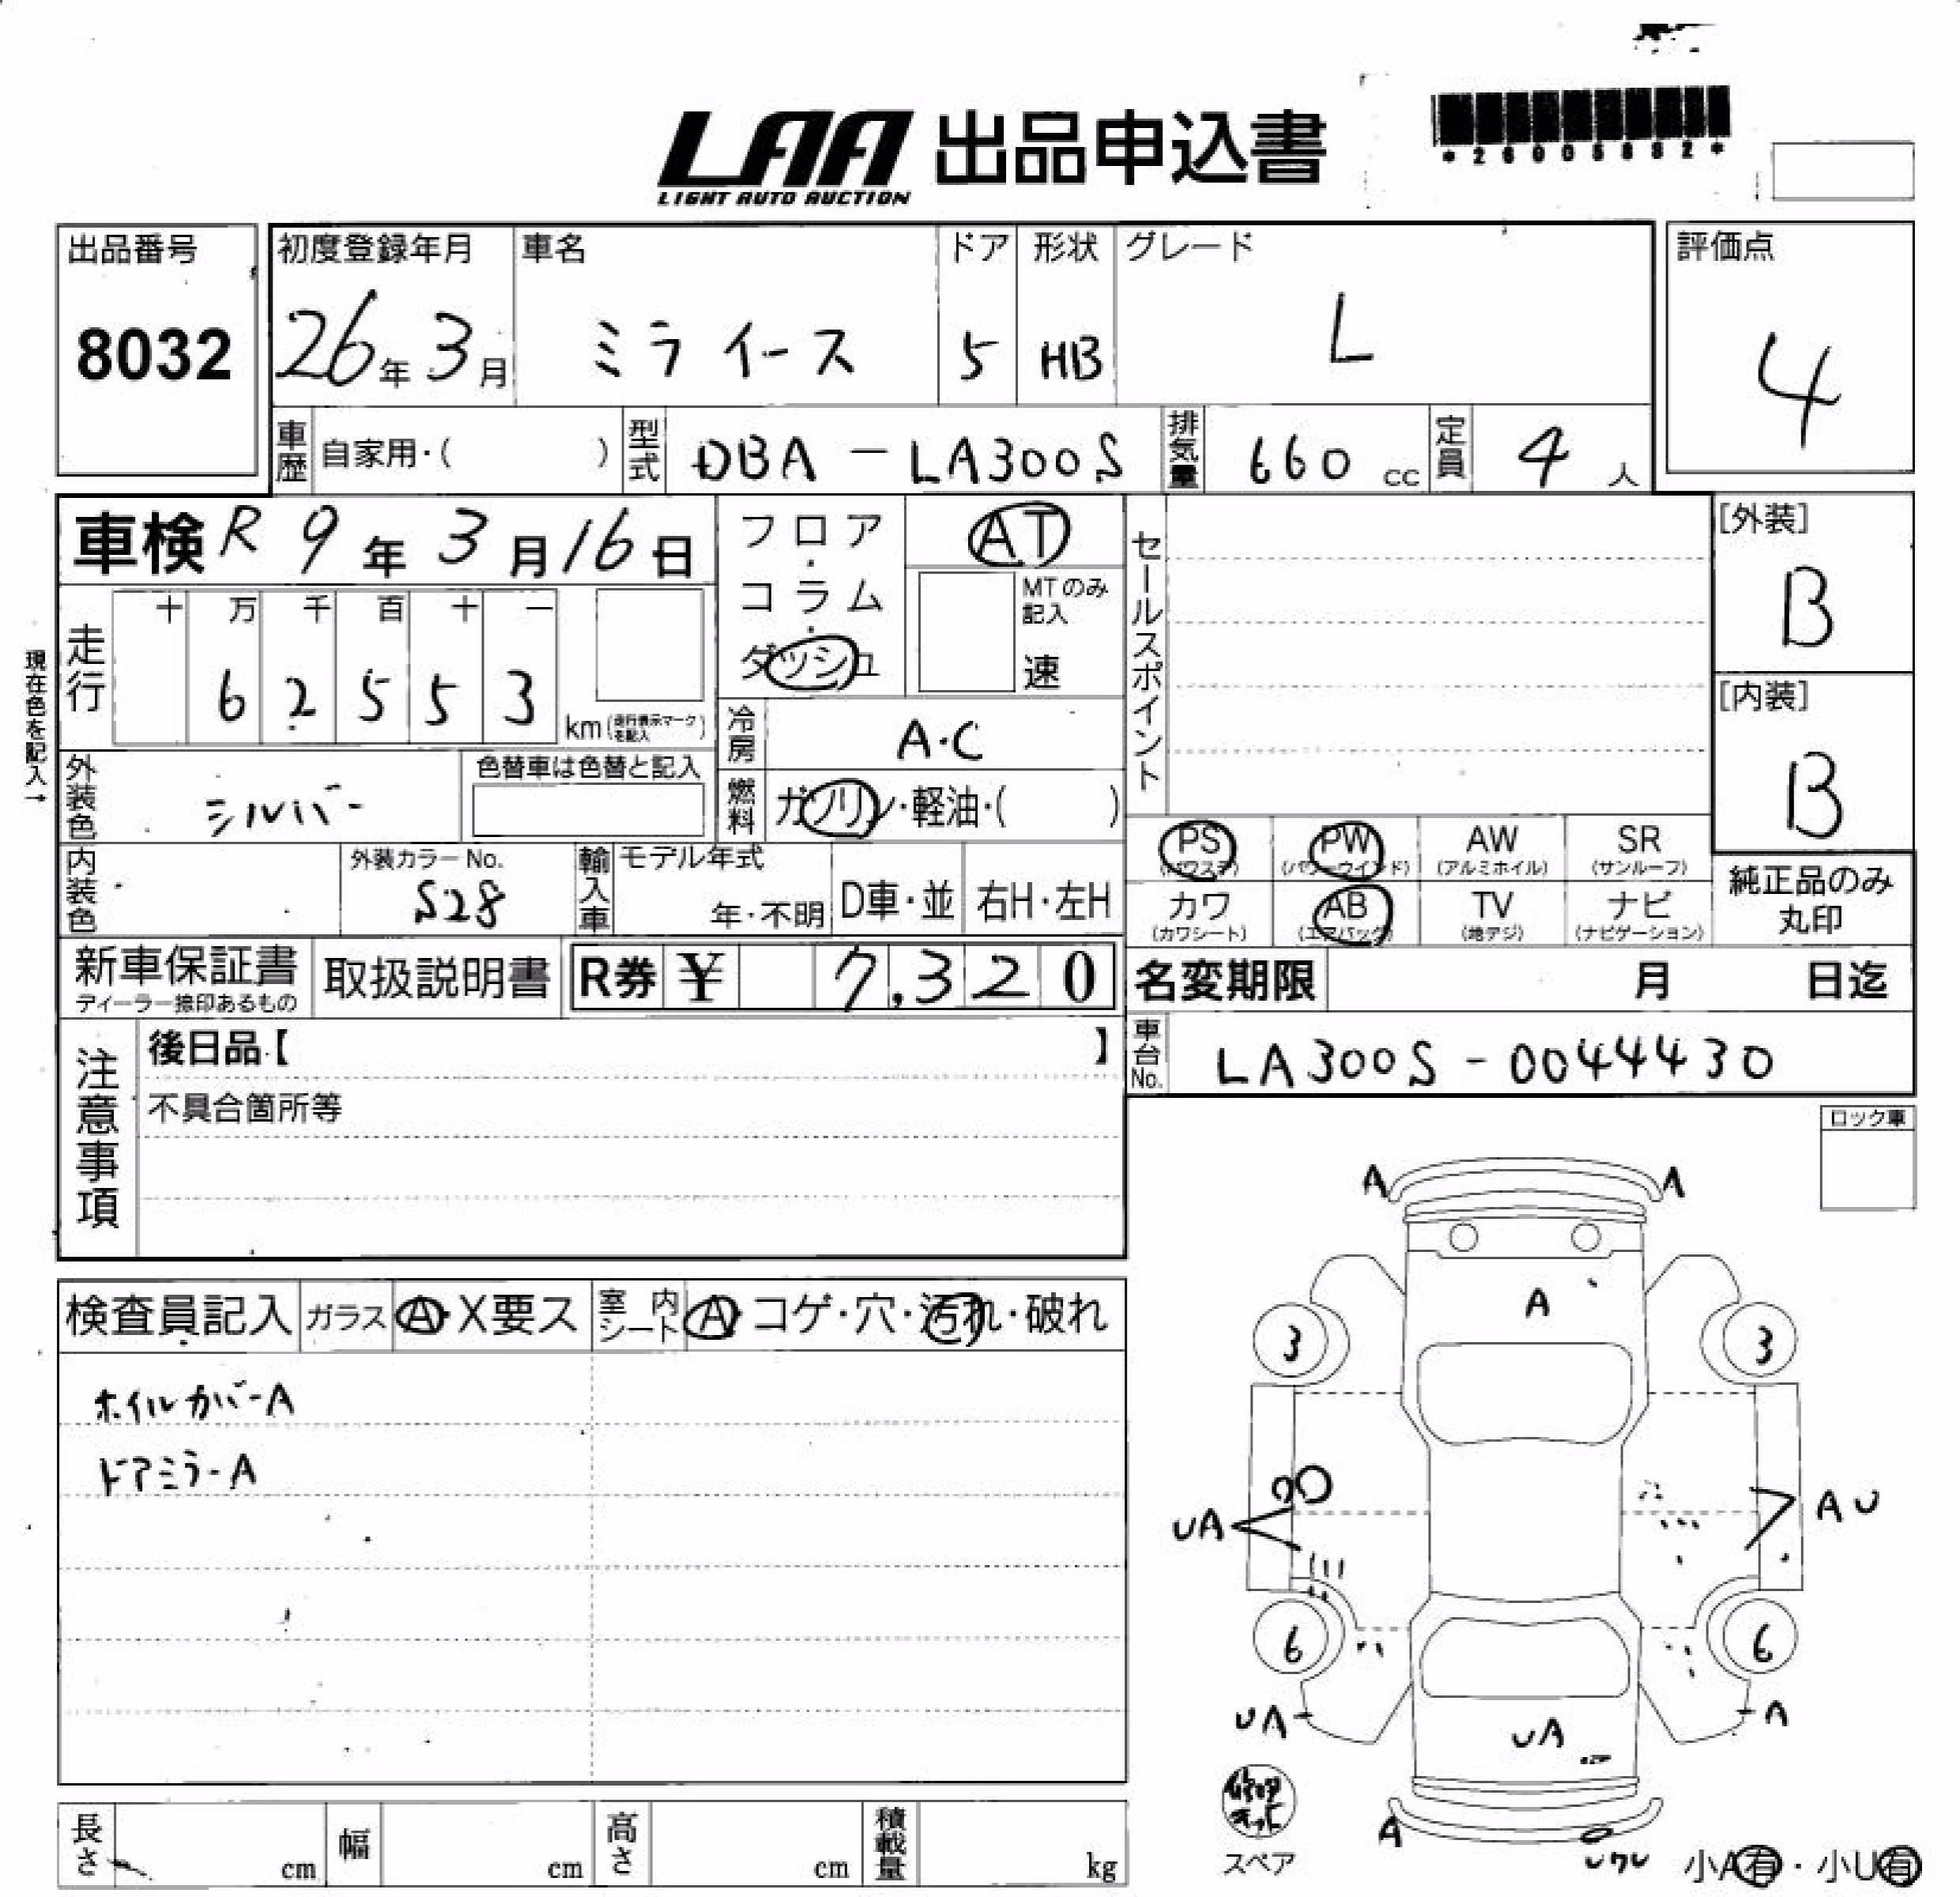 LAA 出品申込書
LIGHT AUTO AUCTION
*26005882*
出品番号
8032
初度登録年月
26年3月
車名
ミライース
ドア
5
形状
HB
グレード
L
評価点
4
車歴 自家用・( )
型式 DBA-LA300S
排気量 660 cc
定員 4 人
車検 R9年3月16日
フロア・コラム・ダッシュ
AT
MTのみ記入
速
セールスポイント
[外装]
B
[内装]
B
現在色を記入→
走行
十 万 千 百 十 一
6 2 5 5 3
km (走行表示マークを記入)
冷房 A・C
燃料 ガソリン・軽油・( )
外装色 シルバー
色替車は色替と記入
内装色
外装カラーNo.
S28
輸入車 モデル年式
年・不明
D車・並
右H・左H
PS (パワステ)
PW (パワーウインド)
AW (アルミホイル)
SR (サンルーフ)
カワ (カワシート)
AB (エアバック)
TV (地デジ)
ナビ (ナビゲーション)
純正品のみ
丸印
新車保証書
ディーラー捺印あるもの
取扱説明書
R券 ¥ 7,320
名変期限 月 日迄
車台No. LA300S-0044430
注意事項
後日品【 】
不具合箇所等
ロック車
検査員記入
ガラス A・X要ス
室内シート A・コゲ・穴・汚れ・破れ
ホイルカバーA
ドアミラーA
A A
A
3 3
UA AU
6 6
UA A
UA
A
スペア
小A有・小U有
長さ cm
幅 cm
高さ cm
積載量 kg